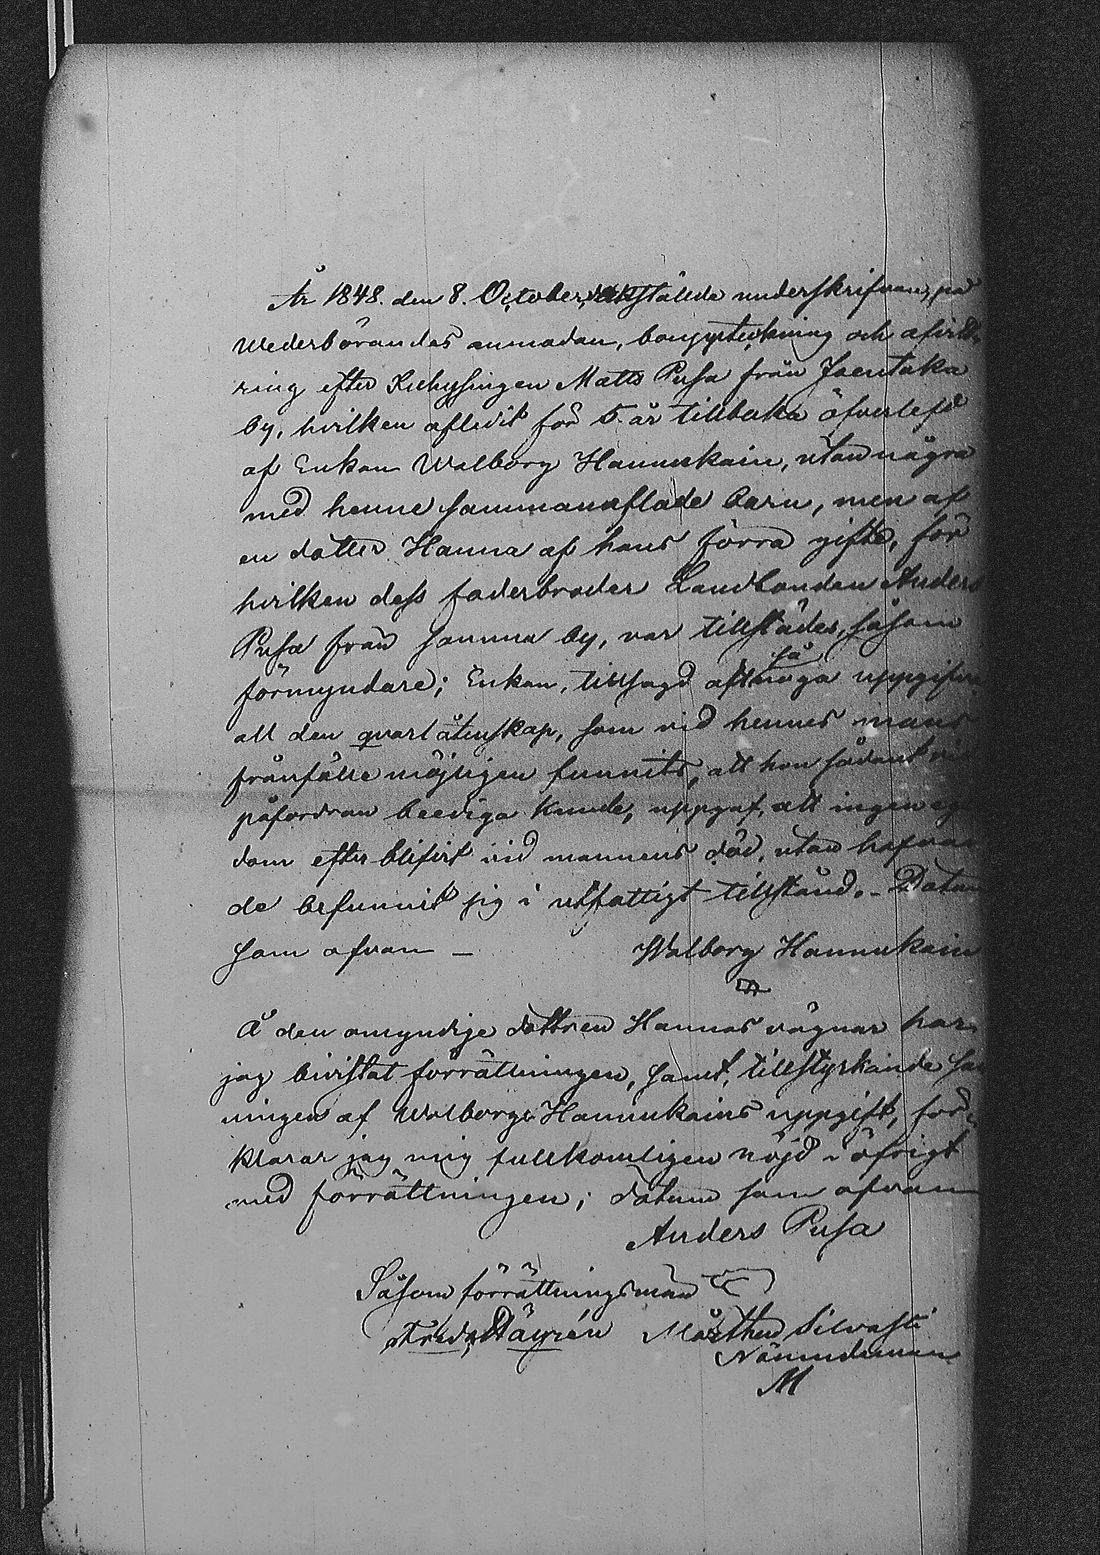 År 1848. den 8. October, värkstälde underskrifvan, på
Wederbörandes anmodan, bouppteckning och afvitt-
ring efter Inhysingen Matts Pusa från Jaentaka
by, hvilken aflidit för 5. år tillbaka öfverlefd
af Enkan Walborg Hannukain, utan några
med henne sammanaflade barn, men af
en dotter Hanna af hans förra gifte, för
hvilken dess faderbroder Landbonden Anders
Pusa från samma by, var tillstädes, såsom
förmyndare; Enkan, tillsagd att noga så uppgifva
all den qvarlåtenskap, som vid hennes mans
frånfälle möjligen funnits, att hon sådant vid
påfordran beediga kunde, uppgaf, att ingen egen
dom efterblifvit vid mannens död, utan hafvan
de befunnit sig i utfattigt tillstånd. - Datum
som ofvan — Walborg Hannukain
Å den omyndige dottren Hannas vägnar har
jag bivistat förrättningen, samt, tillstyrkande san
ningen af Walborg Hannukains uppgift, för-
klarar jag mig fullkomligen nöjd i öfrigt
med förrättningen; datum som ofvan
Anders Pusa
Såsom förrättningsman
Fredr. Häyrén Mårthen Silvasti
Nämndeman
M